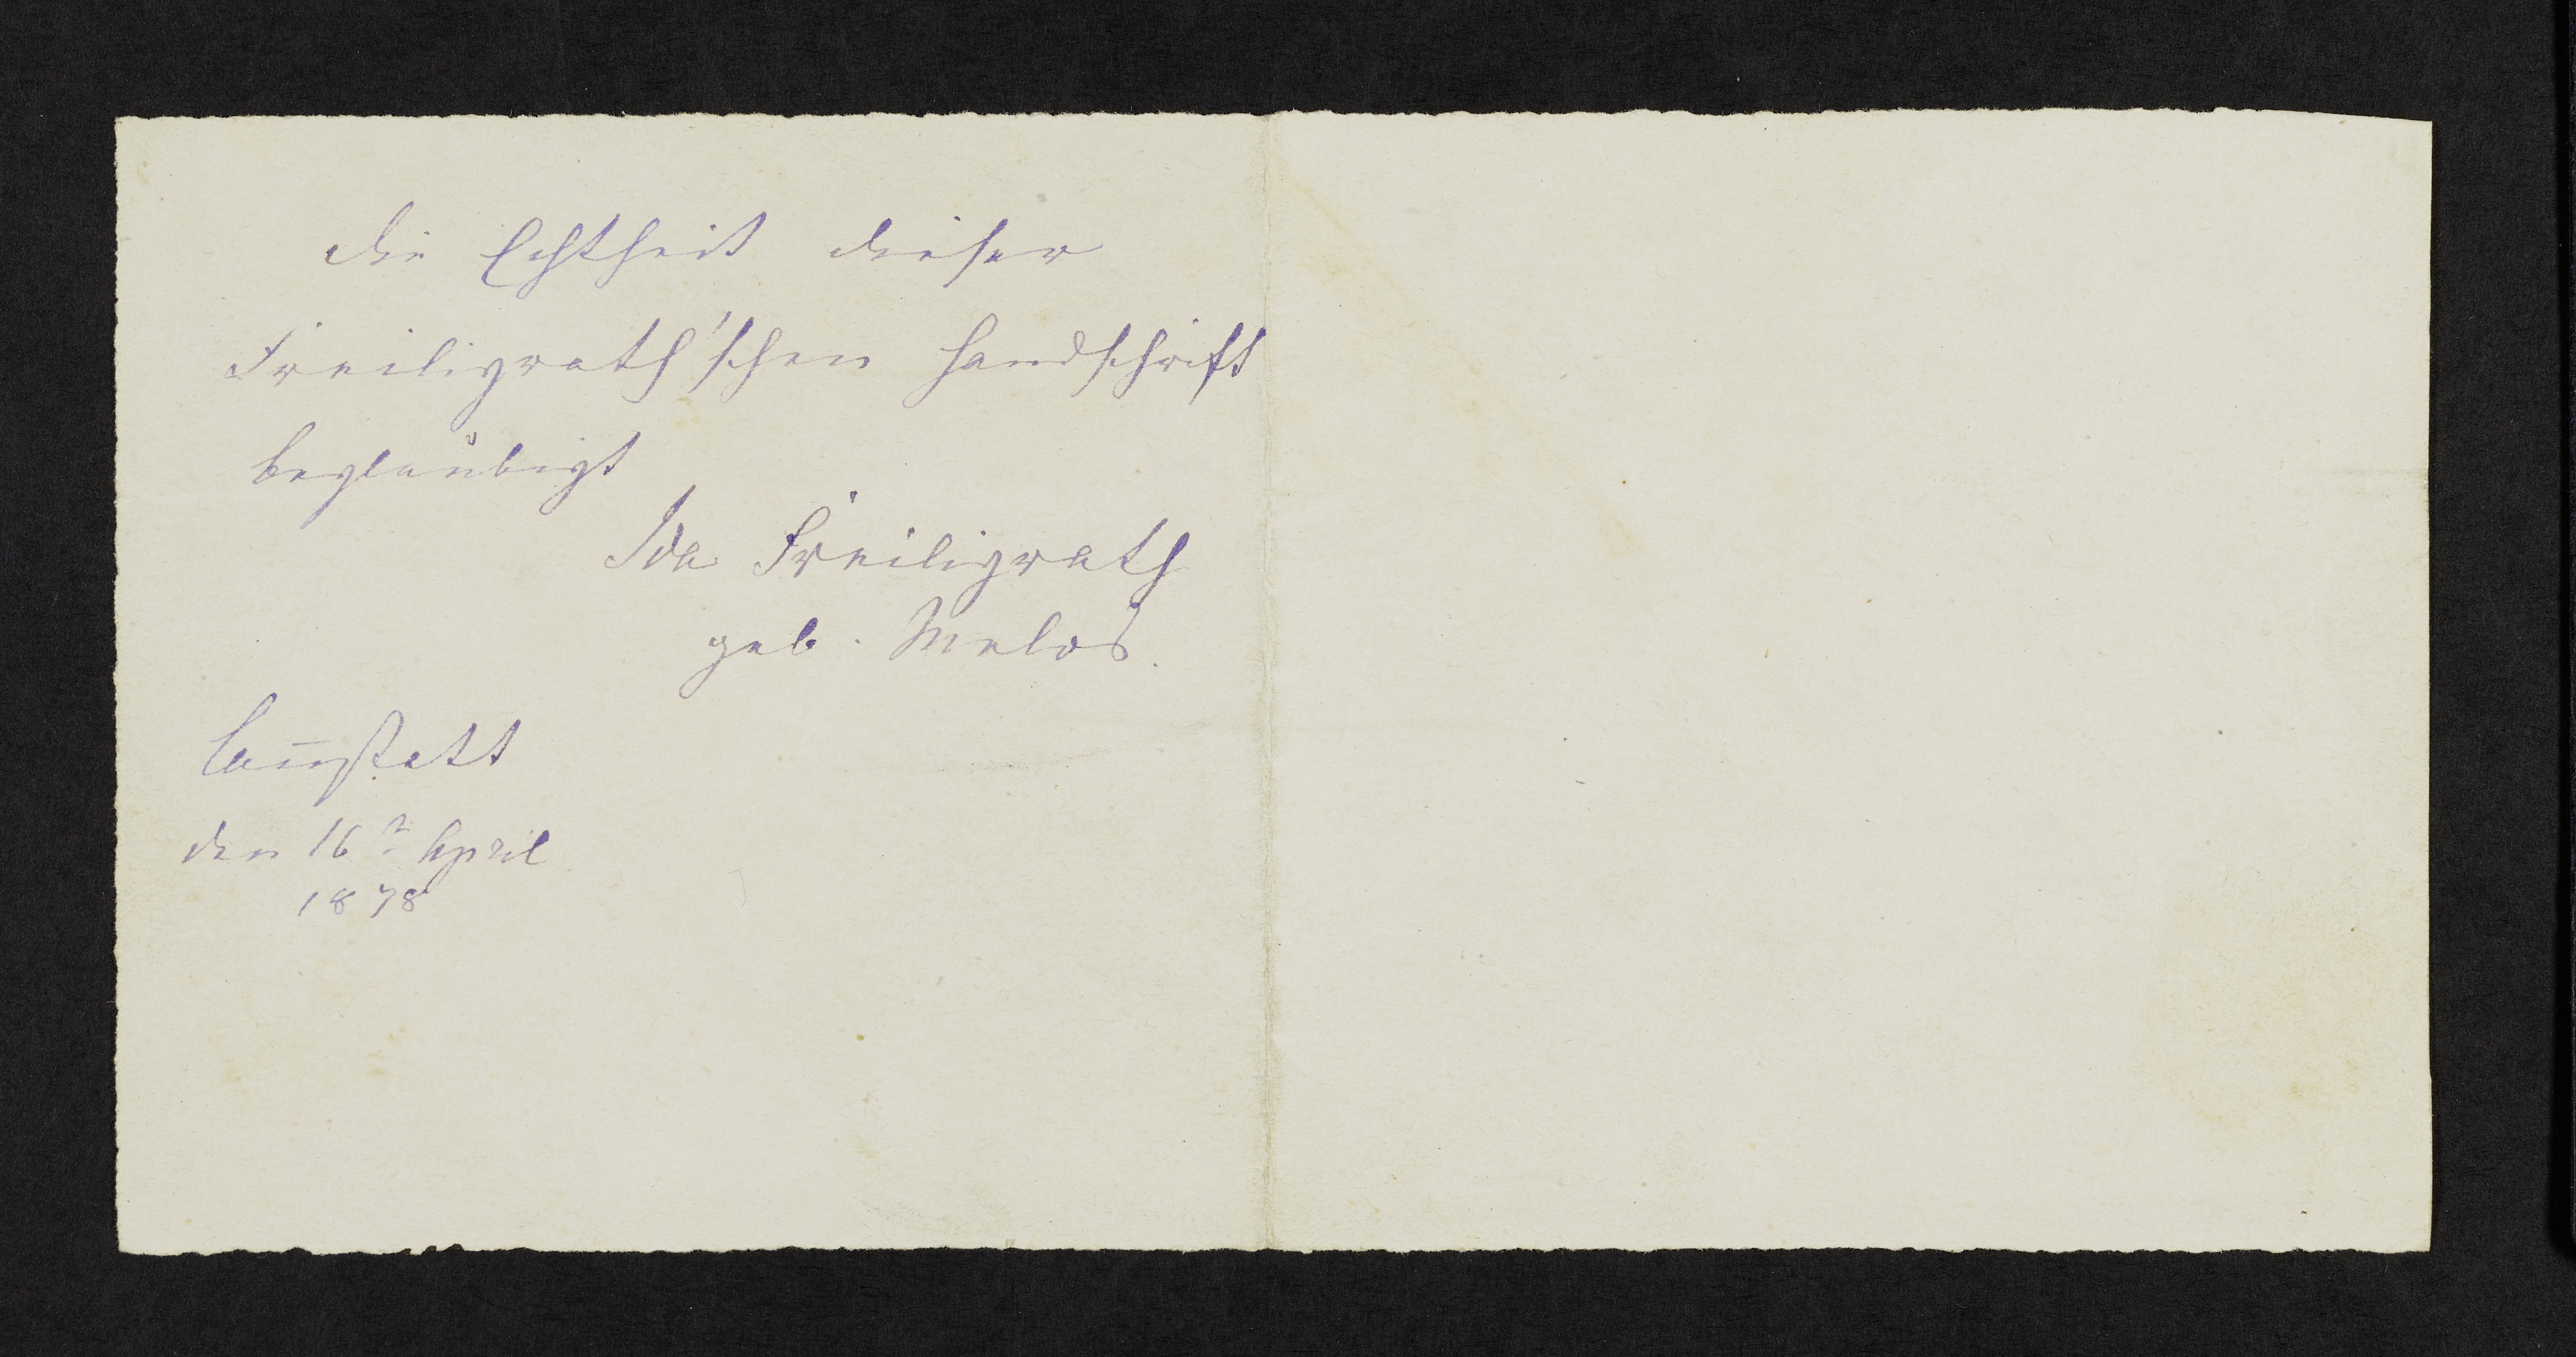 Die Echtheit dieser
Freiligrath'schen Handschrift
beglaubigt
Ida Freiligrath
geb. Melos.
Can̅statt
den 16t April
1878